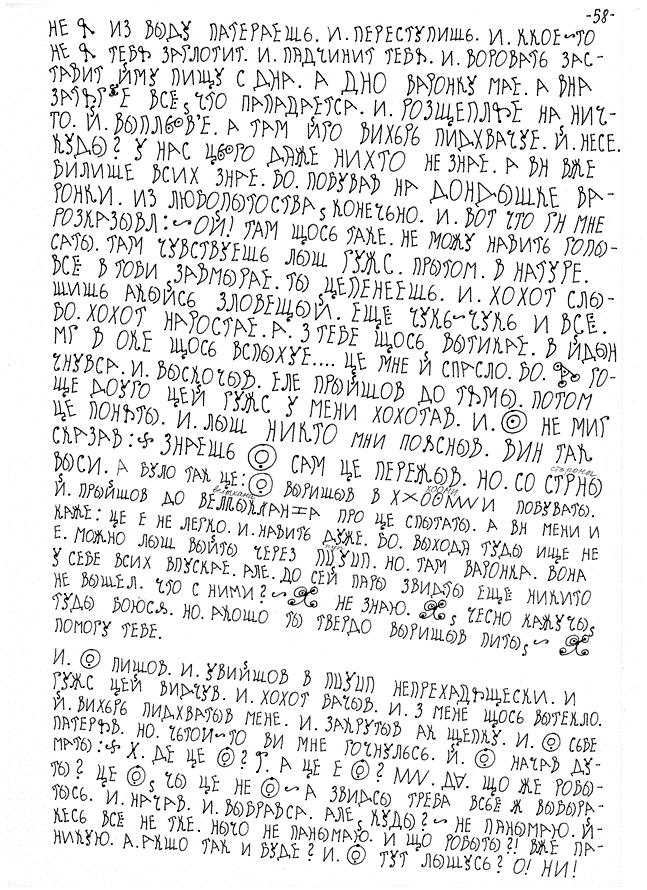 -58-
НЕ Я ИЗ ВЫДУ ПАТЕРАЕШЬ. И. ПЕРЕСТУПИШЬ. И. ККОЕ~ТО
НЕ Я ТЕБЯ ЗАГЛОТИТ. И. ПАДЧИНИТ ТЕБЯ. И. ВОРОВАТЬ ЗАС-
ТАВИТ ЙМУ ПИЩУ С ДНА. А ДНО ВАРОНКУ МАЕ. А ВНА
ЗАТЯГ'Е ВСЕ, ЧТО ПАПАДАЕТСА. И. РОЗЩЕПЛЯЕ НА НИЧ-
ТО. Й. ВЫПЛЬОВ'Е. А ТАМ ЙГО ВИХЬРЬ ПИДХВАЧУЕ. Й. НЕСЕ.
КУДЫ? У НАС ЦЬОГО ДАЖЕ НИХТО НЕ ЗНАЕ. А ВН ВЖЕ
БИЛИШЕ ВСИХ ЗНАЕ. БО. ПОБУВАВ НА ДОНДЫШКЕ ВА-
РОНКИ. ИЗ ЛЮБОПЫТСТВА, КОНЕЧЬНО. И. ВОТ ЧТО ГН МНЕ
РОЗКАЗЫВЛ: ~ОЙ! ТАМ ЩОСЬ ТАКЕ. НЕ МОЖУ НАВИТЬ ГОПЫ-
САТЫ. ТАМ ЧУВСТВУЕШЬ ЛЫШ ГУЖС. ПРЫТОМ. В НАТУРЕ.
ВСЁ В ТОБИ ЗАВМЫРАЕ. ТЫ ЦЕПЕНЕЕШЬ. И. ХОХОТ СЛЫ-
ШИШЬ АКЫЙСЬ ЗЛОВЕЩЫЙ. ЕЩЕ ЧУКЬ~ЧУКЬ И ВСЁ.
БО. ХОХОТ НАРОСТАЕ. А. З ТЕБЕ ЩОСЬ ВЫТИКАЕ. В ЙДЫН
МГ В ОКЕ ЩОСЬ ВСПЫХУЕ.... ЦЕ МНЕ Й СПАСЛО. БО. ГО-
ЧНУВСА. И. ВЫСКОЧЫВ. ЕЛЕ ПРЫЙШОВ ДО ТЯМЫ. ПОТОМ
ЩЕ ДОУГО ЦЕЙ ГУЖС У МЕНИ ХОХОТАВ. И. НЕ МИГ
ЦЕ ПОНЯТЫ. И. ЛЫШ НИКТО МНИ ПОЯСНЫВ. ВИН ТАК
СКАЗАВ: ЗНАЕШЬ САМ ЦЕ ПЕРЕЖЫВ. НО. СО СТРНЫ
ВЫСИ. А БУЛО ТАК ЦЕ: ВЫРИШЫВ В И ПОБУВАТЫ.
Й. ПРЫЙШОВ ДО ПРО ЦЕ СПЫТАТЫ. А ВН МЕНИ И
КАЖЕ: ЦЕ Е НЕ ЛЕГКО. И. НАВИТЬ ДУЖЕ. БО. ВЫХОДА ТУДЫ ИЩЕ НЕ
Е. МОЖНО ЛЫШ ВЫЙТЫ ЧЕРЕЗ ПЦУЦП. НО. ТАМ ВАРОНКА. ВОНА
У СЕБЕ ВСИХ ВПУСКАЕ. АЛЕ. ДО СЕЙ ПАРЫ ЗВИДТЫ ЕЩЕ НИКИТО
НЕ ВЫШЕЛ. ЧТО С НИМИ? ~ НЕ ЗНАЮ. , ЧЕСНО КАЖУЧЫ,
ТУДЫ БОЮСЯ. НО. АКЩО ТЫ ТВЕРДО ВЫРИШЫВ ПИТЫ, ~
ПОМОГУ ТЕБЕ.
И. ПИШОВ. И. УВИЙШОВ В ПЦУЦП НЕПРЕХАДЯЩЕСКИ. И
ГУЖС ЦЕЙ ВИДЧУВ. И. ХОХОТ БАЧЫВ. И. З МЕНЕ ЩОСЬ ВЫТЕКЛО.
Й. ВИХЬРЬ ПИДХВАТЫВ МЕНЕ. И. ЗАКРУТЫВ АК ЩЕПКУ. И. СЬБЕ
ПАТЕРЯВ. НО. ЧЬТОЙ~ТО ВИ МНЕ ГОЧНУЛЬСЬ. Й. НАЧАВ ДУ-
МАТЫ: Х. ДЕ ЦЕ ? Я. А ЦЕ Е ? ДА. ЩО ЖЕ РОБЫ-
ТЫ? ЦЕ , ЧЫ ЦЕ НЕ ~ А ЗВИДСЫ ТРЕБА ВСЬЁ Ж ВЫБЫРА-
ТЫСЬ. И. НАЧАВ. И. ВЫБРАВСА. АЛЕ, КУДЫ? ~ НЕ ПАНЫМАЮ. Й-
КЕСЬ ВСЁ НЕ ТКЕ. НЫЧО НЕ ПАНЫМАЮ. И ЩО РОБЫТЫ?! ВЖЕ ПА-
НИКУЮ. А. АКШО ТАК И БУДЕ? И. ТУТ ЛЫШУСЬ? О! НИ!